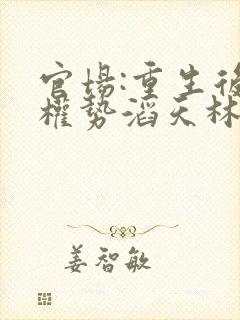 官场:重生後
權势滔天林
姜智敏